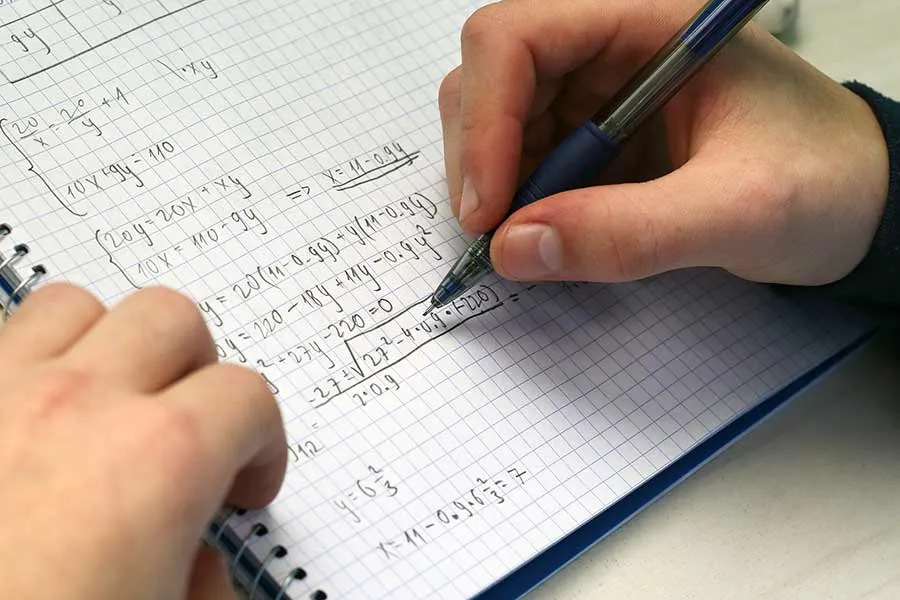 9y
20/x = 20/y + 1 \·xy
10x+9y=110
20y=20x+xy
10x=110-9y => x=11-0.9y
y=20(11-0.9y)+y(11-0.9y)
y=220-18y+11y-0.9y²
y²+27y-220=0
-27±√27²-4·0.9·(-220) =
2·0.9
12 =
y=6 2/3
x=11-0.9·6 2/3=7